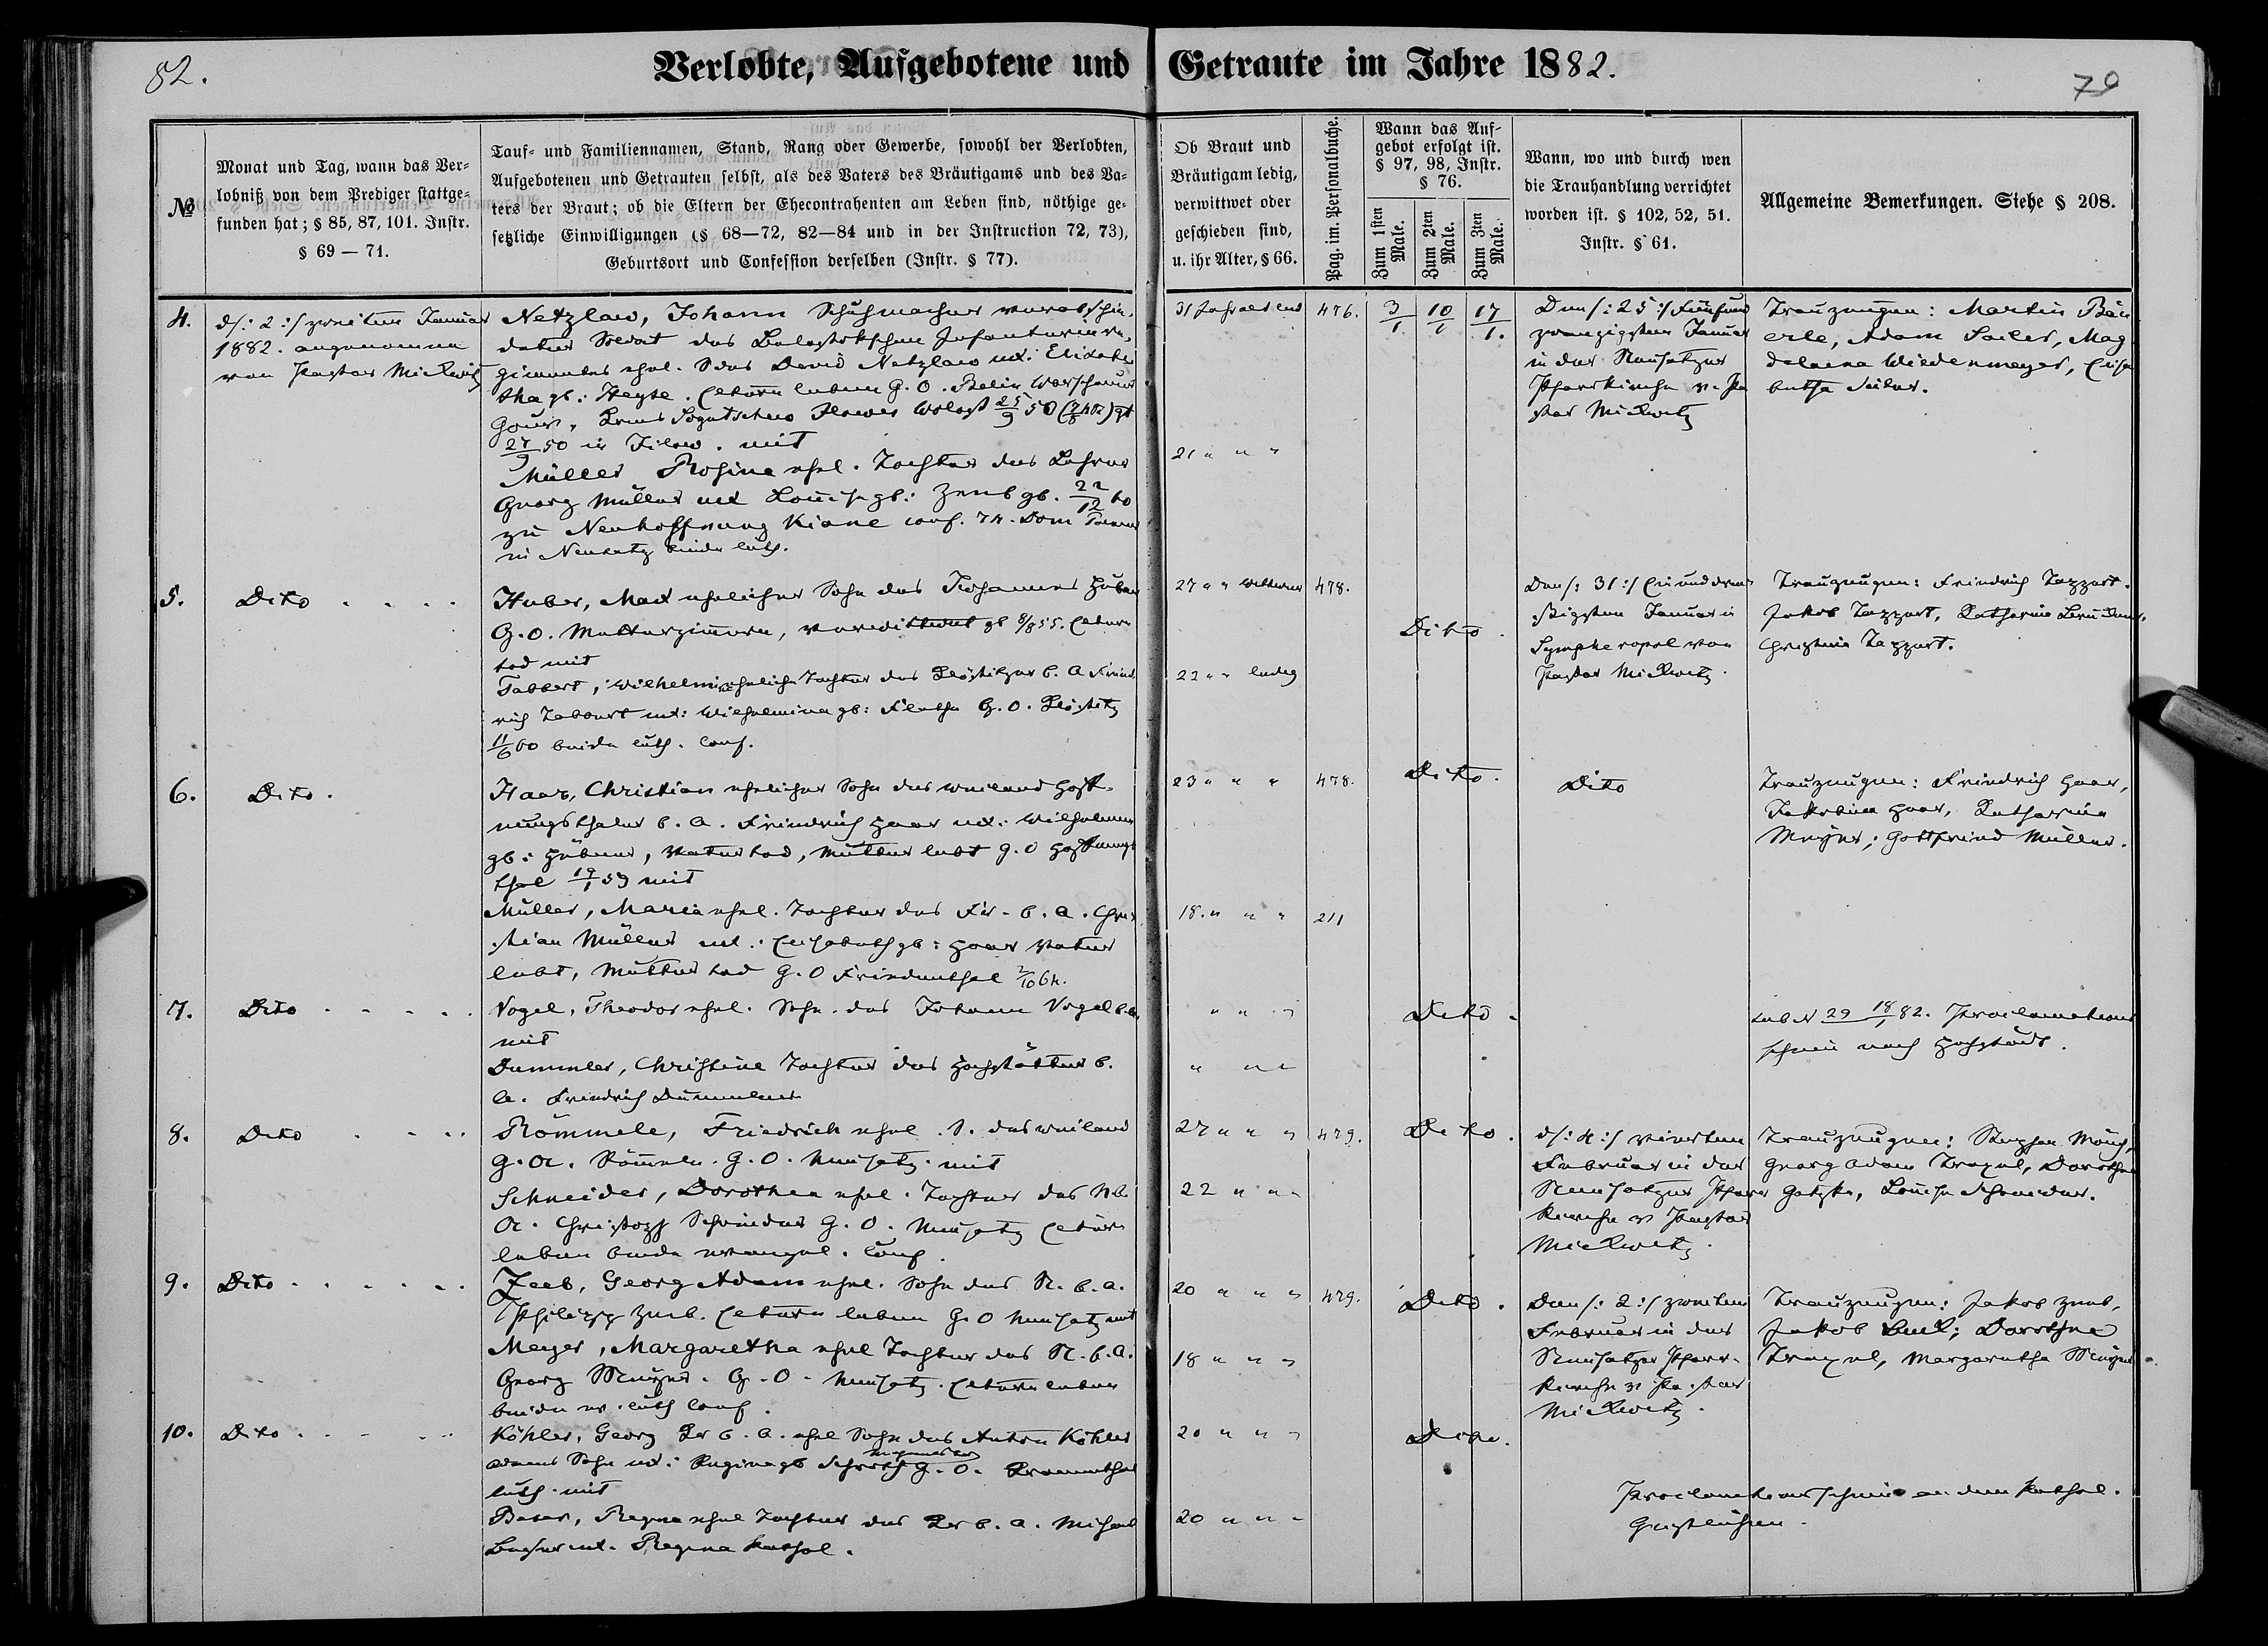 82.
Verlobte, Aufgebotene und Getraute im Jahre 1882.
79
№
Monat und Tag, wann das Ver-
lobniß von dem Prediger stattge-
funden hat; § 85, 87, 101. Instr.
§ 69 — 71.
Tauf- und Familiennamen, Stand, Rang oder Gewerbe, sowohl der Verlobten,
Aufgebotenen und Getrauten selbst, als des Vaters des Bräutigams und des Va-
ters der Braut; ob die Eltern der Ehecontrahenten am Leben sind, nöthige ge-
setzliche Einwilligungen (§ 68—72, 82—84 und in der Instruction 72, 73),
Geburtsort und Confession derselben (Instr. § 77).
Ob Braut und
Bräutigam ledig,
verwittwet oder
geschieden sind,
u. ihr Alter, § 66.
Pag. im. Personalbuche.
Wann das Auf-
gebot erfolgt ist.
§ 97, 98, Instr.
§ 76.
Zum 1sten
Male.
Zum 2ten
Male.
Zum 3ten
Male.
Wann, wo und durch wen
die Trauhandlung verrichtet
worden ist. § 102, 52, 51.
Instr. § 61.
Allgemeine Bemerkungen. Siehe § 208.
4.
d/: 2 :/ zweiten Januar
1882. angenommen
von Pastor Mickwitz
Netzlaw, Johann Schuhmacher verabschie-
deter Soldat des Infanterie re-
giments ehel. S des David Netzlaw u Elisabe
tha gb: Heyse. Eltern leben G. O.
Gouv. 25/9 50
27/9 50 in mit
Müller Rosina ehel. Tochter des Lehrer
Georg Müller u Louise gb: Zeeb gb. 22/12 60
zu Neuhoffnung conf.
in Neusatz beide luth.
31 Jahr alt led
21 " " "
476.
3/1. 10/1 17/1.
Den /: 25 :/ Fünfund
zwanzigsten Januar
in der Neusatzer
Pfarrkirche v. Pa
stor Mickwitz
Trauzeugen: Martin Bäu
erle, Adam Sailer, Mag
dalena Wiedenmeyer, Elisa
betha Sailer.
5.
Dito . . . .
Huber, Max ehelicher Sohn des Johannes Huber
G. O. Mutterzimmern, verwittwet gb 8/8 55. Eltern
tod mit
Tabbert, Wilhelmine eheliche Tochter des Klöstitzer C. A Fried
rich Tabbert u: Wilhelmina gb: G. O. Klöstitz
11/6 60 beide luth. Conf.
27 " " Wittwer
22 " " ledig
478.
Dito.
Den /: 31 :/ Einunddrei
ßigsten Januar in
Sympheropol von
Pastor Mickwitz.
Trauzeugen: Friedrich Tabbert.
Jakob Tabbert, Katharina
Christina Tabbert.
6.
Dito.
Haar, Christian ehelicher Sohn des weiland Hoff-
nungsthaler C. A. Friedrich Haar u: Wilhelmine
gb: Hübner, Vater tod, Mutter lebt G. O Hoffnungs
thal 19/1 59 mit
Müller, Maria ehel. Tochter des Fr. C. A. Chri
stian Müller u: Elisabeth gb: Haar Vater
lebt, Mutter tod G. O Friedenthal 2/10 64.
23 " " "
18. " " "
478.
211
Dito.
Dito
Trauzeugen: Friedrich Haar,
Jakobina Haar, Katharina
Meyer; Gottfried Müller.
7.
Dito . . . . .
Vogel, Theodor ehel. Sohn des Johann Vogel C. A.
mit
Dummler, Christine Tochter des Hochstätter C.
A. Friedrich Dümmler
" " "
" " "
Dito.
sub № 29 18/1 82. Proclamations
schein nach Hochstädt.
8.
Dito . . . .
Römmele, Friedrich ehel. S. des weiland
G. A. Römmele. G. O. Neusatz. mit
Schneider, Dorothea ehel. Tochter des N C.
A. Christoph Schneider G. O. Neusatz Eltern
leben beide evangel. Conf.
27 " " "
22 " " "
479.
Dito.
d/: 4 :/ vierten
Februar in der
Neusatzer Pfarr
kirche v Pastor
Mickwitz.
Trauzeugen: Stephan Mönch,
Georg Adam Traxel, Dorothea
Louise Schneider.
9.
Dito . . . . . .
Zeeb, Georg Adam ehel. Sohn des N. C. A.
Philipp Zeeb. Eltern leben G. O Neusatz mit
Meyer, Margaretha ehel Tochter des N. C. A.
Georg Meyer. G. O. Neusatz. Eltern leben
beide ev. luth Conf.
20 " " "
18 " " "
479.
Dito.
Den /: 2 :/ zweiten
Februar in der
Neusatzer Pfarr-
kirche v Pastor
Mickwitz.
Trauzeugen: Jakob Zeeb,
Jakob Beck; Dorothea
Traxel, Margaretha Meyer.
10.
Dito . . . . .
Köhler, Georg Kr C. A. ehel Sohn des Anton Köhler
Adams Sohn u: Regina gb Schroth G. O. Kronenthal
luth. mit
Beser, Regina ehel Tochter des Kr C. A. Michael
u. Regina kathol.
20 " " "
20 " " "
Dito.
Proclamationsschein an den kathol.
Geistlichen.